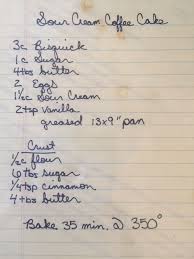 Sour Cream Coffee Cake
3c Bisquick
1c Sugar
4tbs butter
2 Eggs
1½c Sour Cream
2tsp Vanilla
greased 13x9" pan
Crust
½c flour
6 tbs sugar
¼tsp cinnamon
4 tbs butter
Bake 35 min. @ 350°